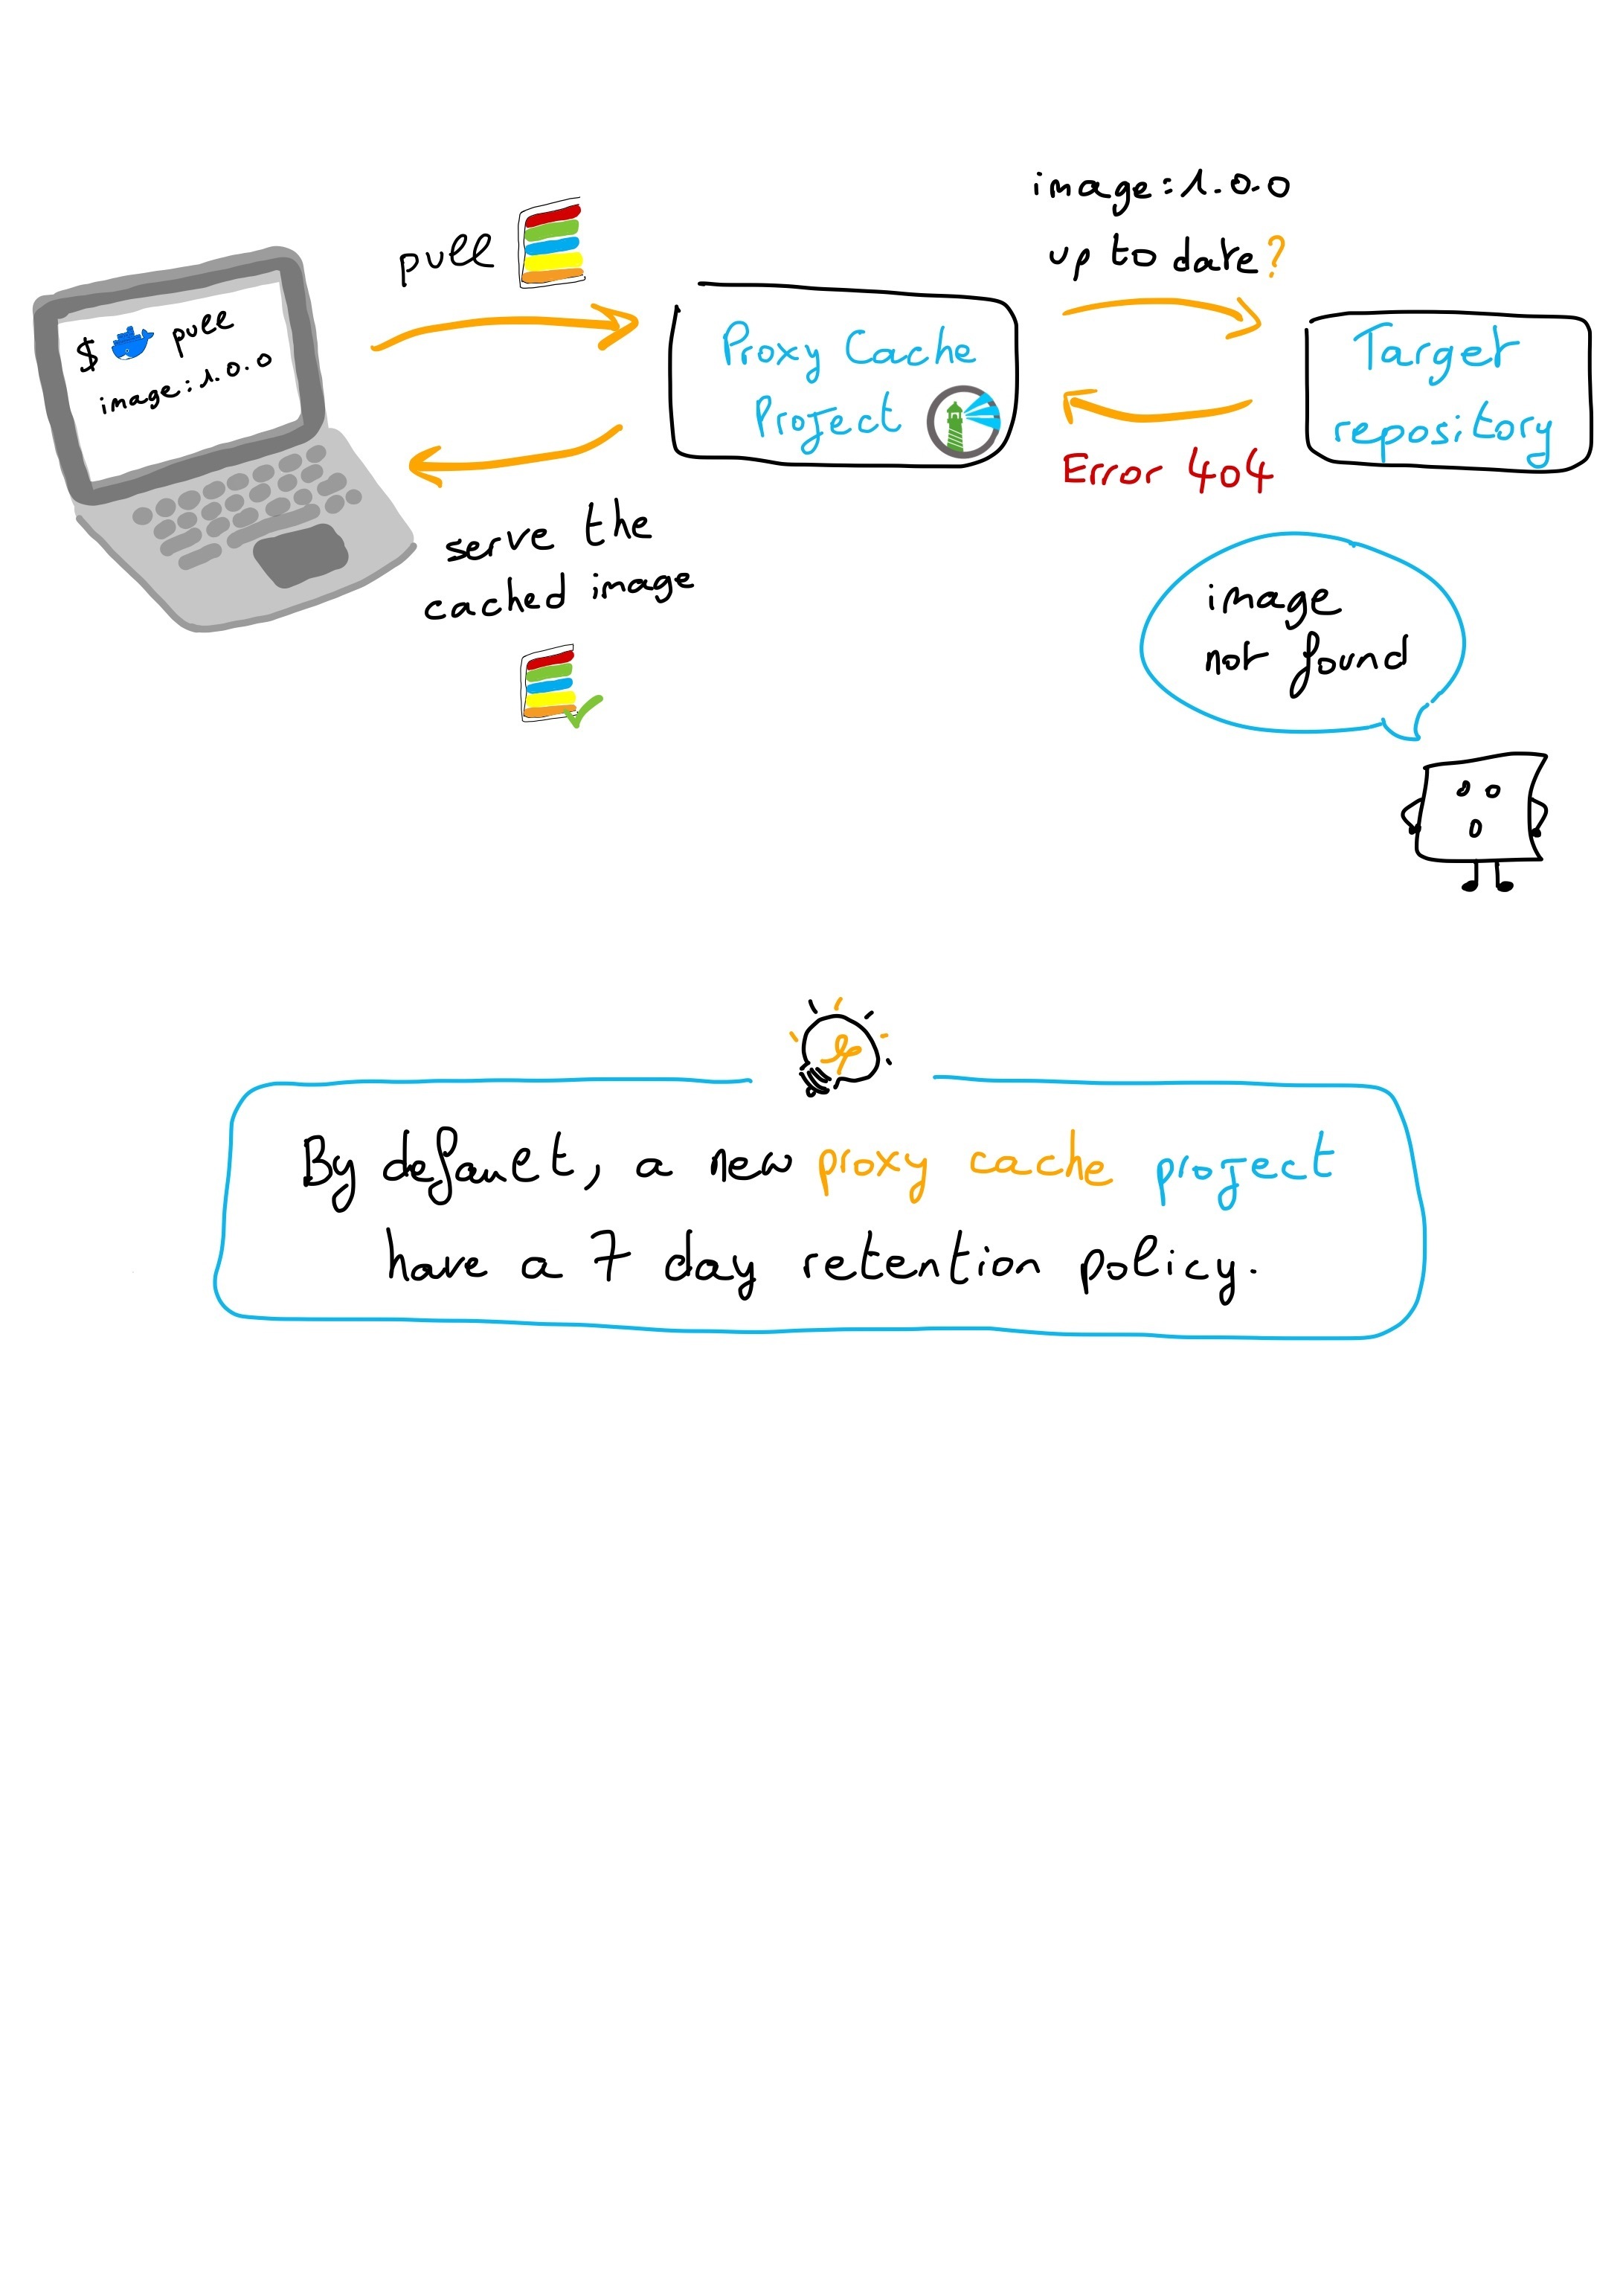 $ pull
image:1.0.0
pull
Proxy Cache
Project
image:1.0.0
up to date?
Target
repository
Error 404
serve the
cached image
image
not found
By default, a new proxy cache project
have a 7 day retention policy.